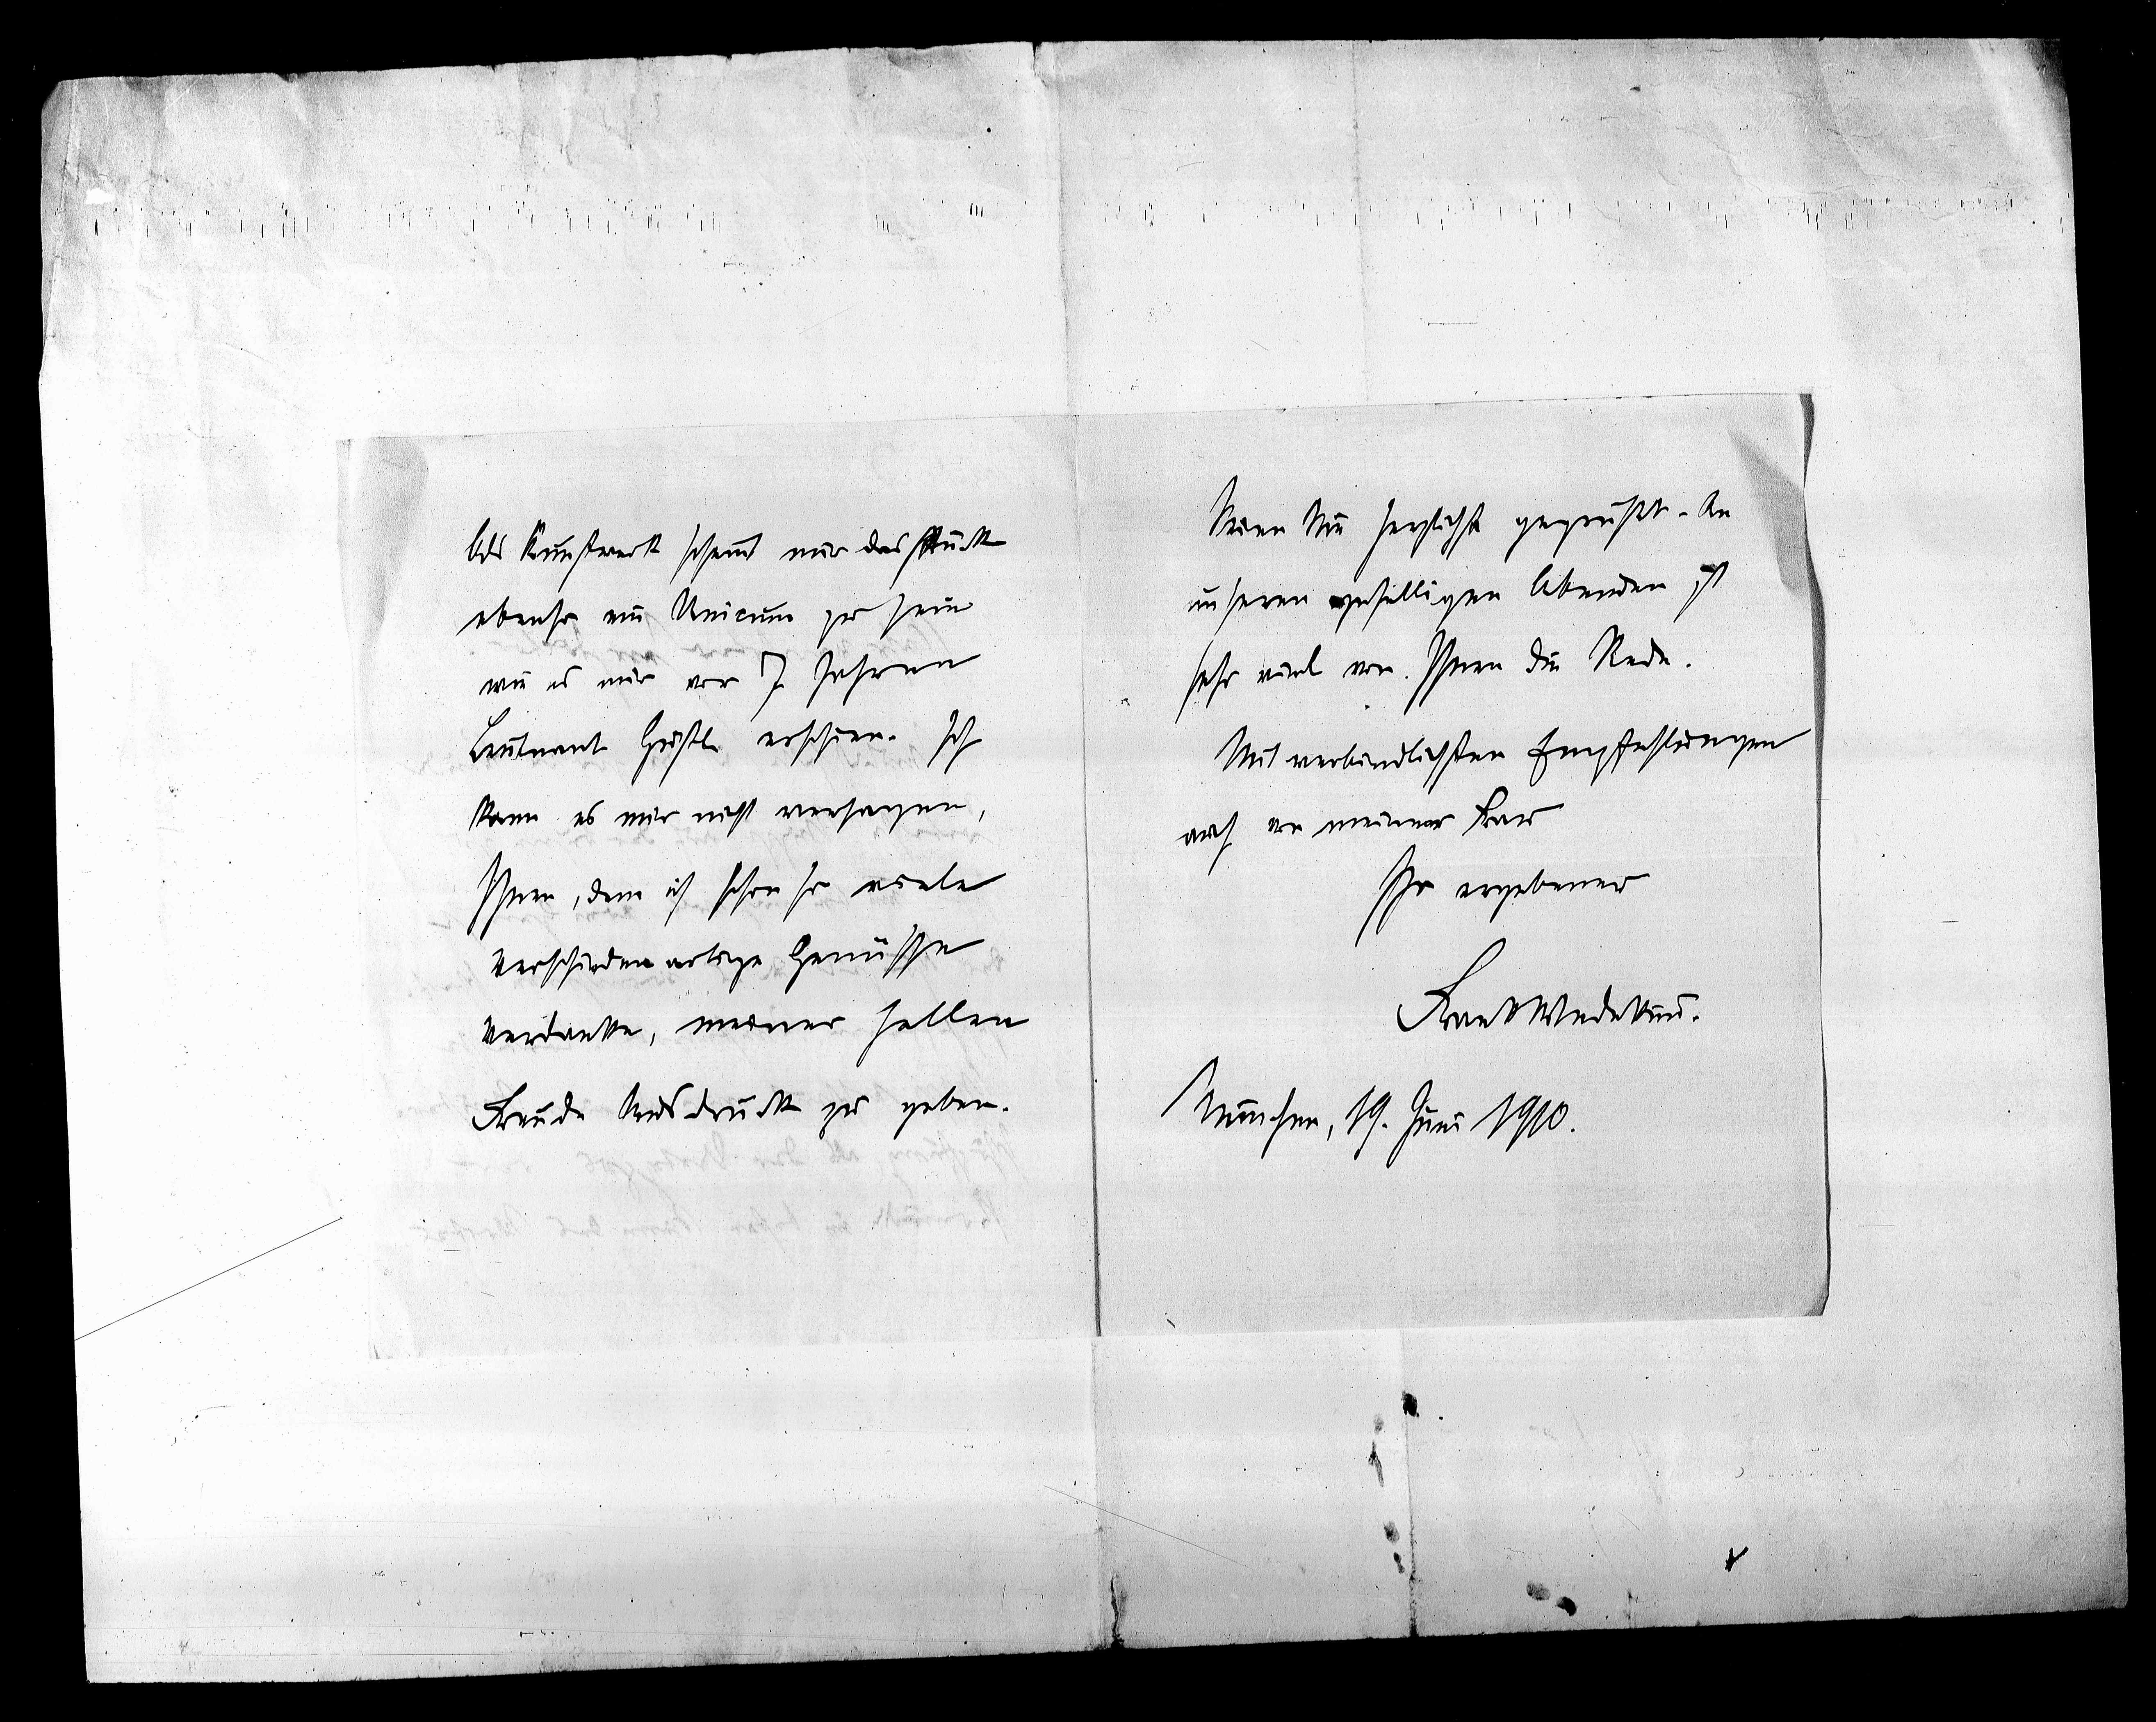 Als Kunstwerk scheint mir das Stück
ebenso ein Unicum zu sein
wie es mir vor 7 Jahren
Leutnant Gustl erschien. Ich
kann es mir nicht versagen,
Ihnen, dem ich schon so viele
verschiedenartige Genüsse
verdanke, meiner hellen
Freude Ausdruck zu geben.
Seien Sie herzlichst gegrüßt. An
unseren geselligen Abenden ist
sehr viel von Ihnen die Rede.
Mit verbindlichsten Empfehlungen
auch von meiner Frau
Ihr ergebener
Frank Wedekind.
München, 19. Juni 1910.